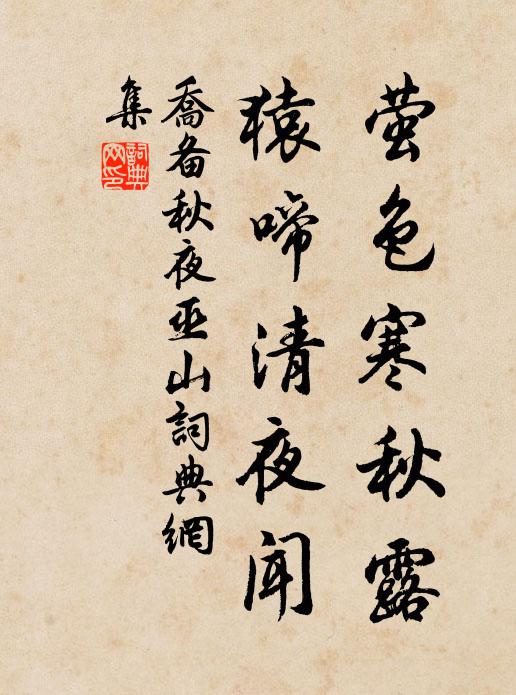 萤色寒秋露
猿啼清夜闻
喬备秋夜巫山詞典網
集
詞典
网印